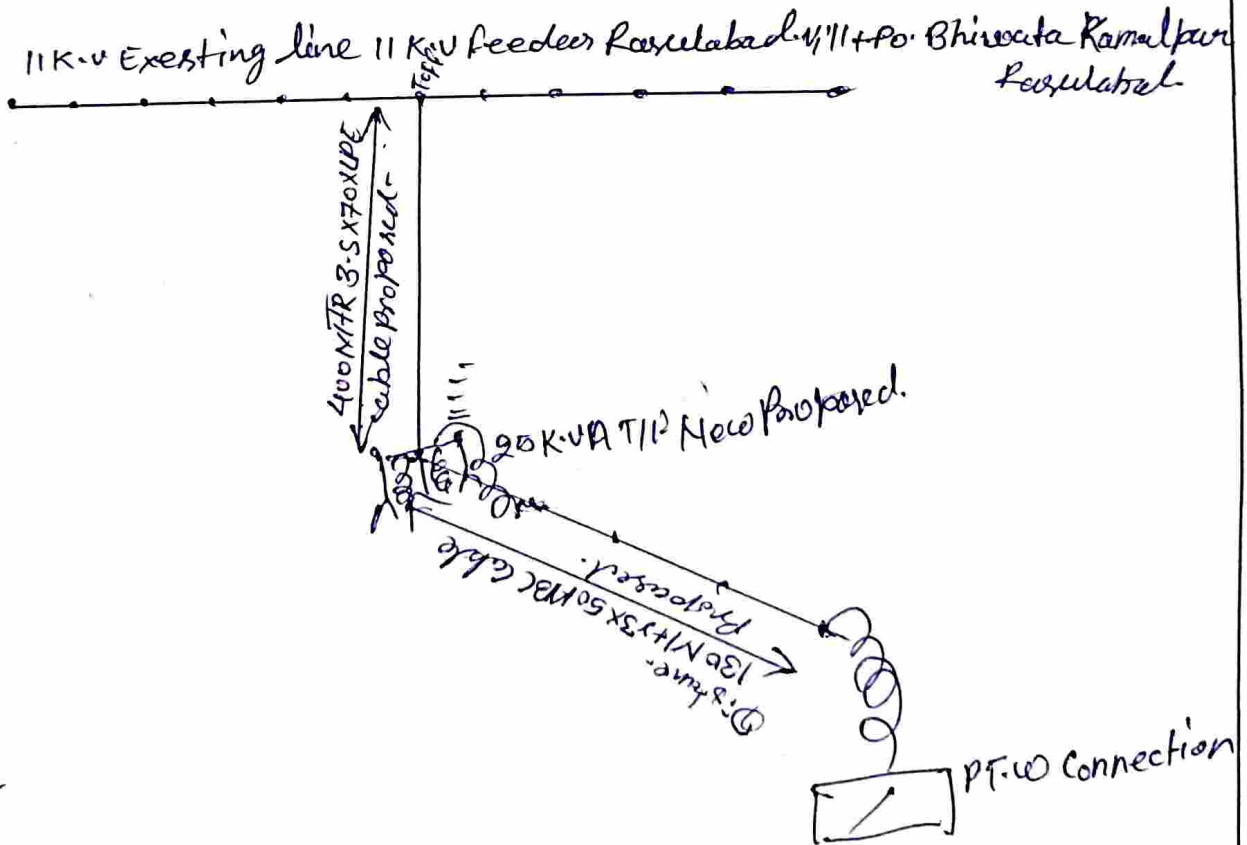 11 K.V Exesting line 11 K.V feeder Rasulabad. Vill+Po. Bhirwata Kamalpur
Rasulabad
Toff
400 MTR 3.5X70XLPE
cable proposed-
25 K.VA T/F New Proposed.
Distance.
130 Mtr 3X50 ABC Cable
Proposed.
PT.W Connection